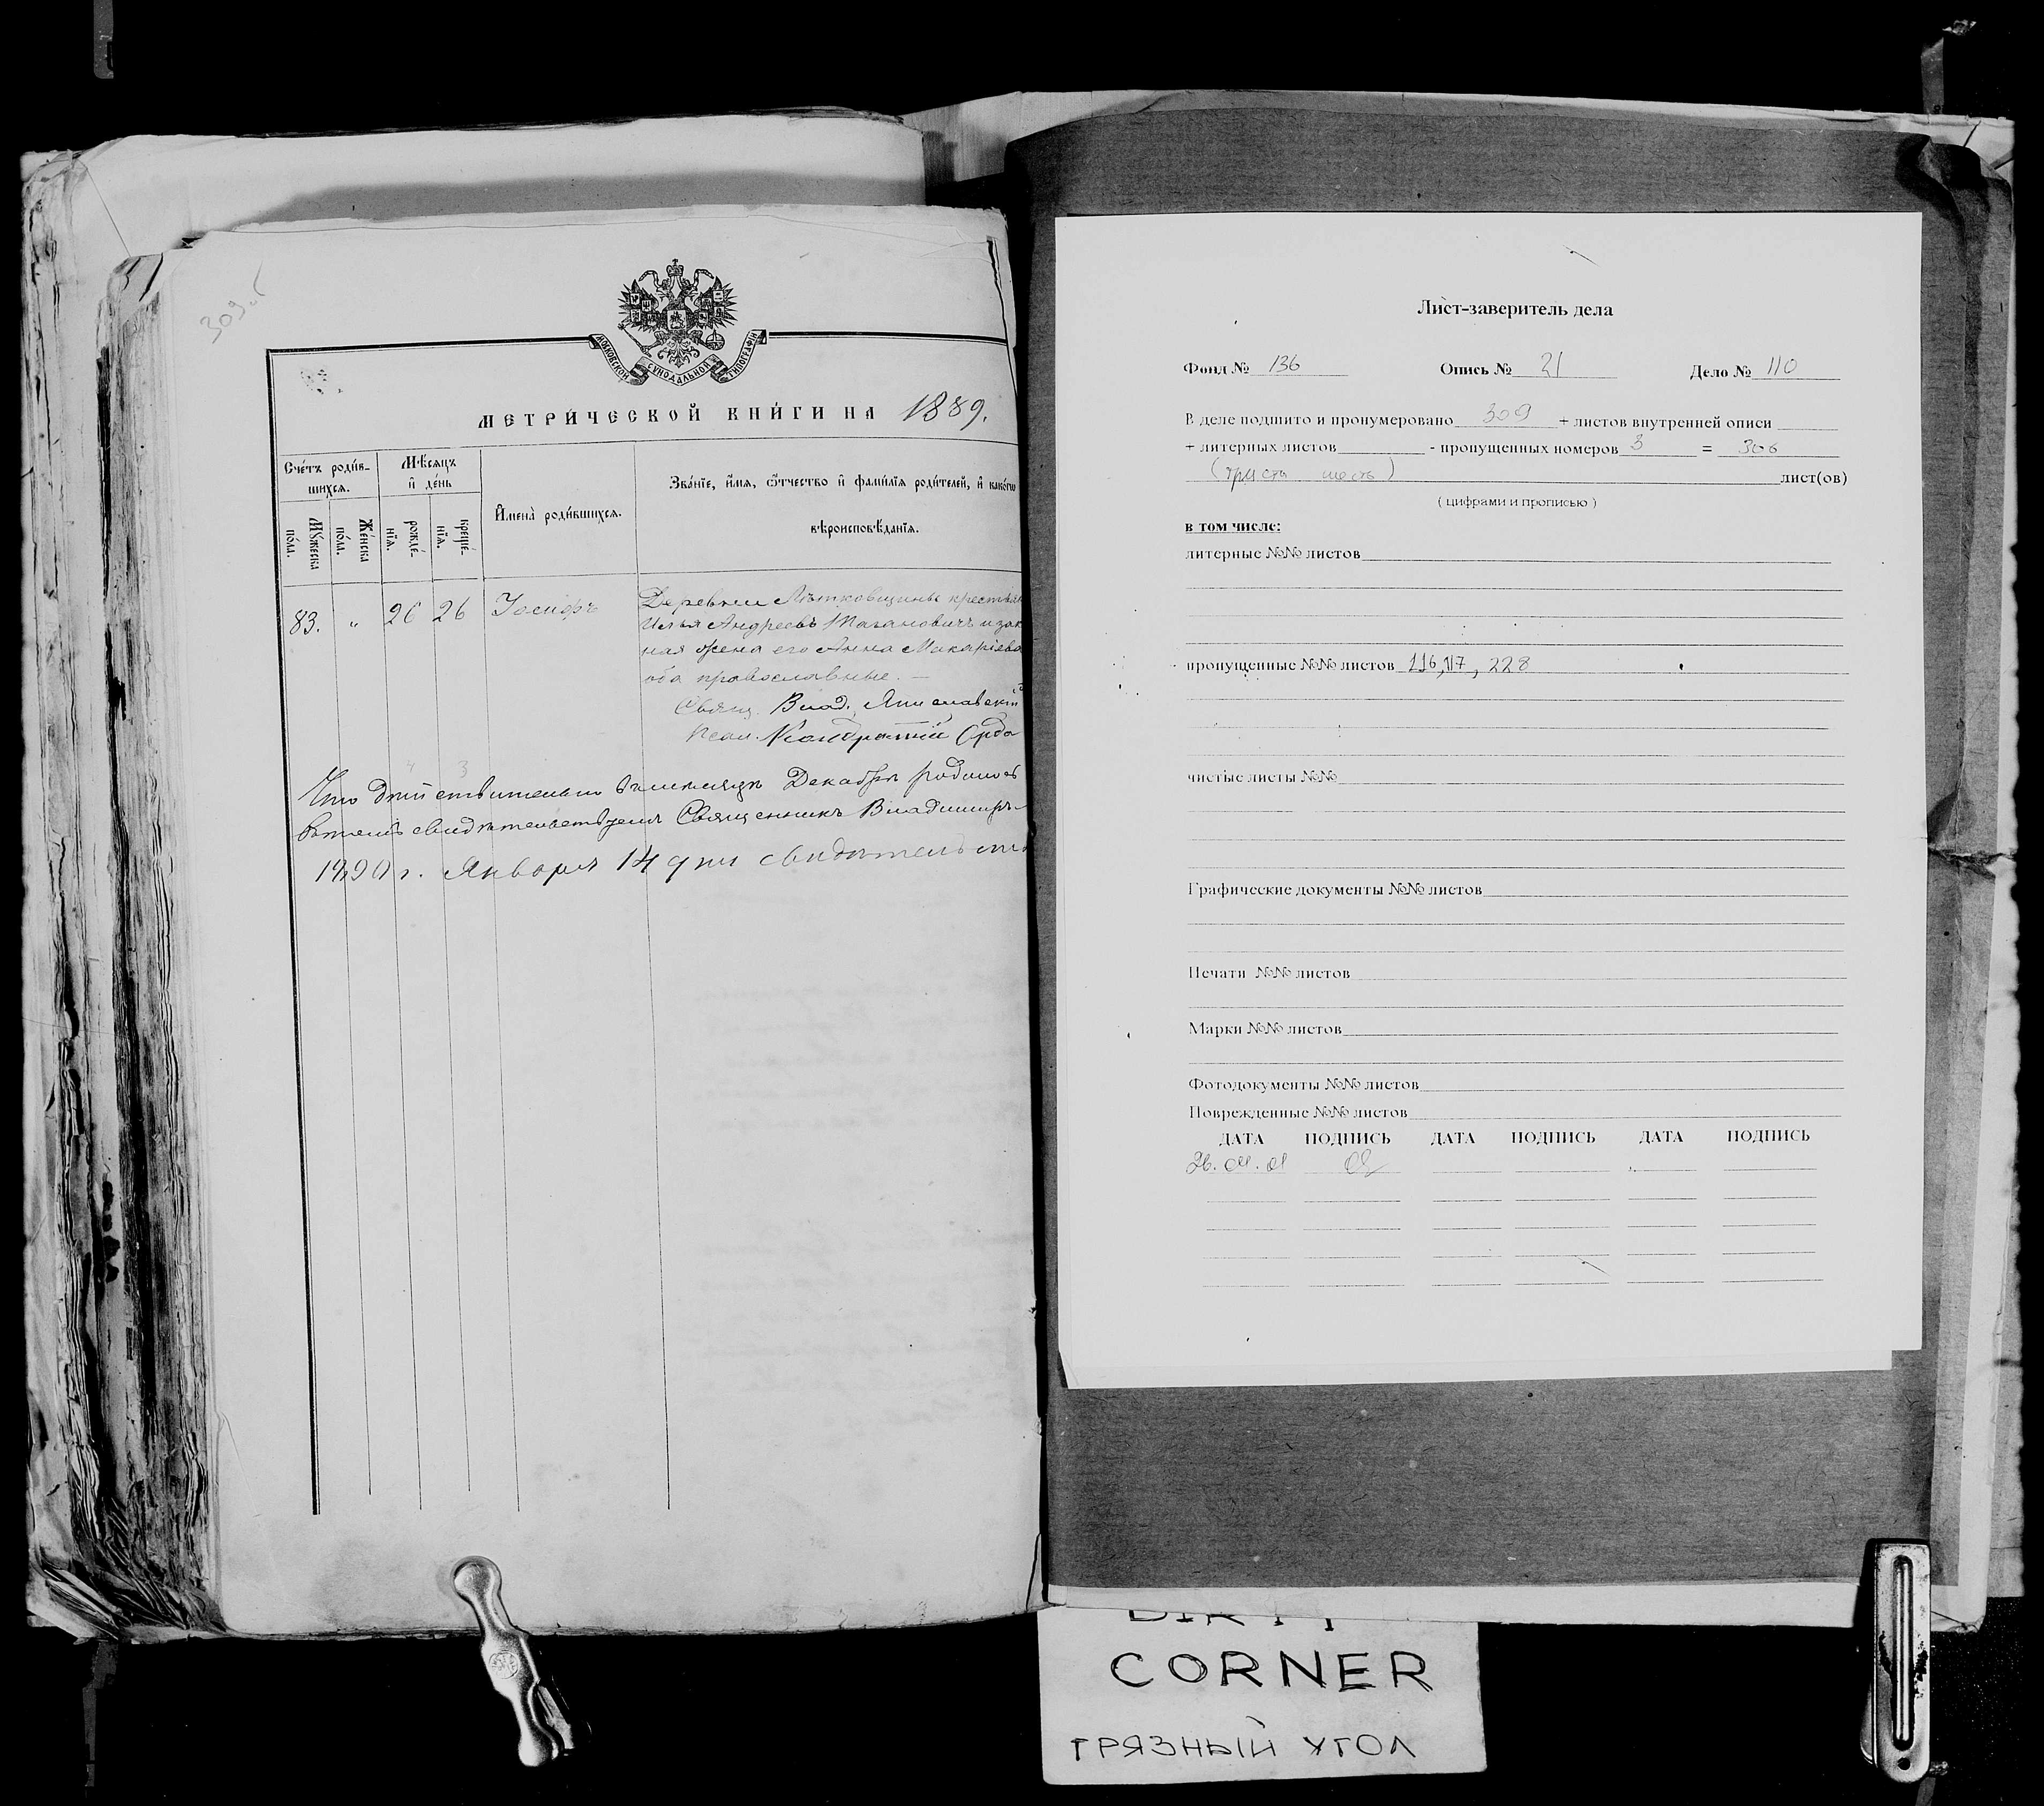 309
МОСКОВСКОЙ СУНОДАЛЬНОЙ ТИПОГРАФІИ
МЕТРИ́ЧЕСКОЙ КНИ́ГИ НА 1889.
Сче́тъ роди́в-
шихся.
Мꙋ́жеска по́ла.
Же́нска по́ла.
Мѣ́сяцъ
и҆ де́нь
рожде́-
нїѧ.
креще́-
нїѧ.
И҆мена̀ роди́вшихсѧ.
Зва́нїе, и҆́мѧ, ѻ҆́тчество и҆ фами́лїѧ роди́телей, и҆ како́гѡ
вѣроисповѣ́данїѧ.
83. " 26 26 Іосифъ
Деревни Лѣтковщины крестьян
Илья Андреевъ Таганович и зак
ная жена его Анна Макаріева
оба православные. —
Свящ. Влад.
Псал. Кондратій Орда
Что дѣйствительно въ мѣсяцѣ Декабрѣ родилось
свидѣтельствуемъ Священникъ Владиміръ
1890 г. Января 14 дня свидѣтельство
Лист-заверитель дела
Фонд № 136 Опись № 21 Дело № 110
В деле подшито и пронумеровано 309 + листов внутренней описи
+ литерных листов - пропущенных номеров 3 = 306
(триста шесть) лист(ов)
( цифрами и прописью )
в том числе:
литерные №№ листов
пропущенные №№ листов 116, 117, 228
чистые листы №№
Графические документы №№ листов
Печати №№ листов
Марки №№ листов
Фотодокументы №№ листов
Поврежденные №№ листов
ДАТА ПОДПИСЬ ДАТА ПОДПИСЬ ДАТА ПОДПИСЬ
26.04.01
DIRTY
CORNER
ГРЯЗНЫЙ УГОЛ